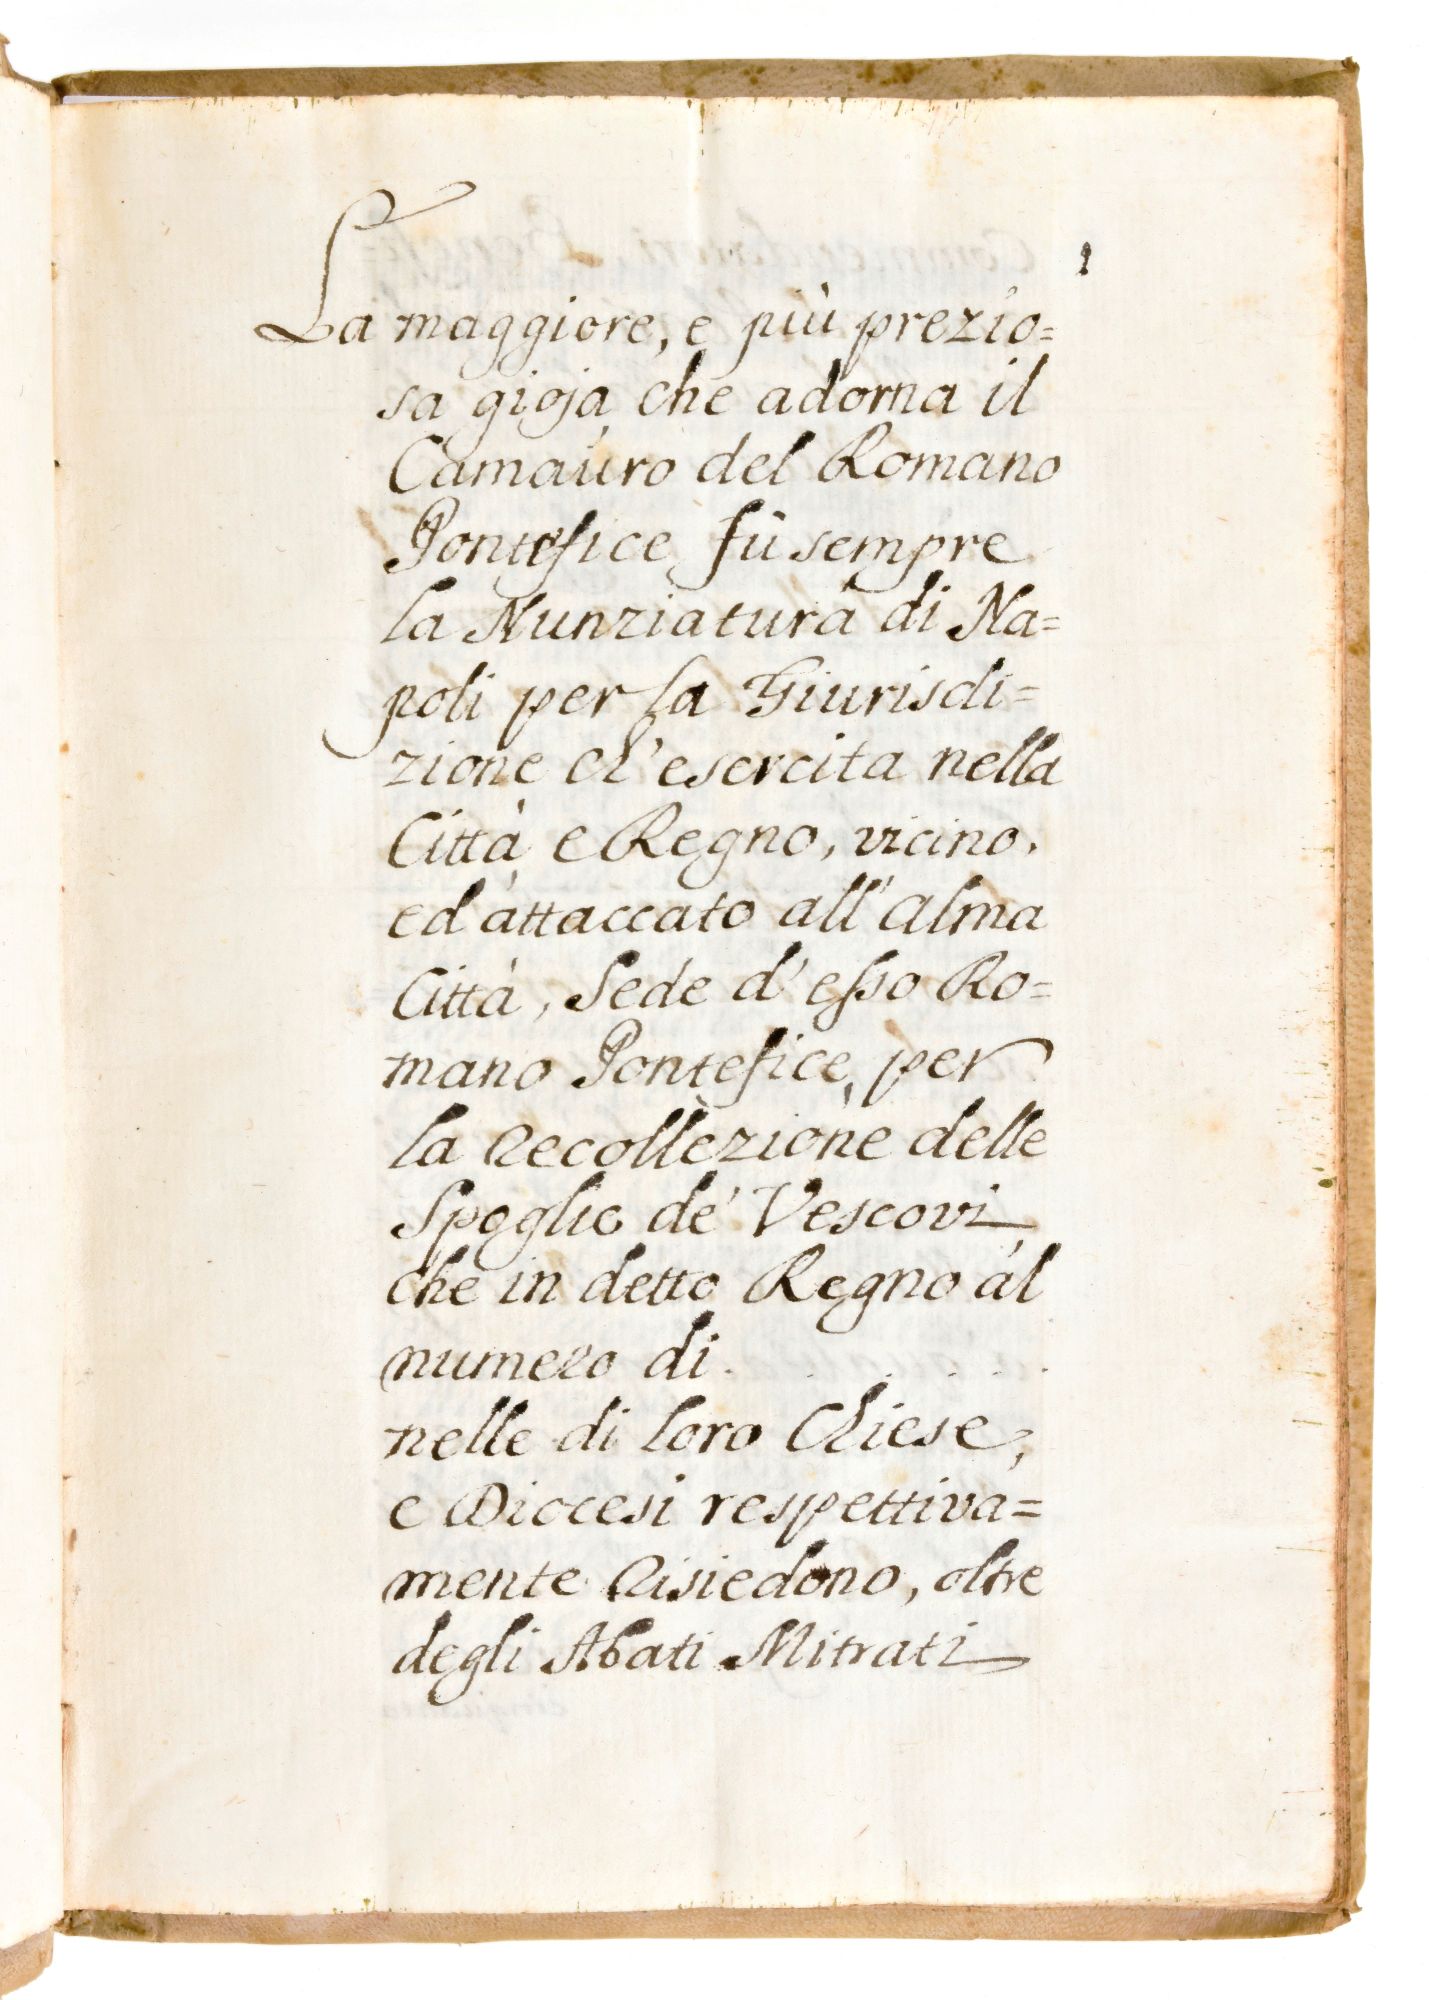 1
La maggiore, e più prezio=
sa gioja che adorna il
Camauro del Romano
Pontefice fù sempre
la Nunziatura di Na=
poli per la Giurisdi=
zione ch'esercita nella
Città e Regno, vicino,
ed attaccato all'alma
Città, Sede d'esso Ro=
mano Pontefice, per
la Recollezione delle
Spoglie de' Vescovi
che in detto Regno al
numero di . . . . . .
nelle di loro Chiese,
e Diocesi respettiva=
mente Risiedono, oltre
degli Abati Mitrati